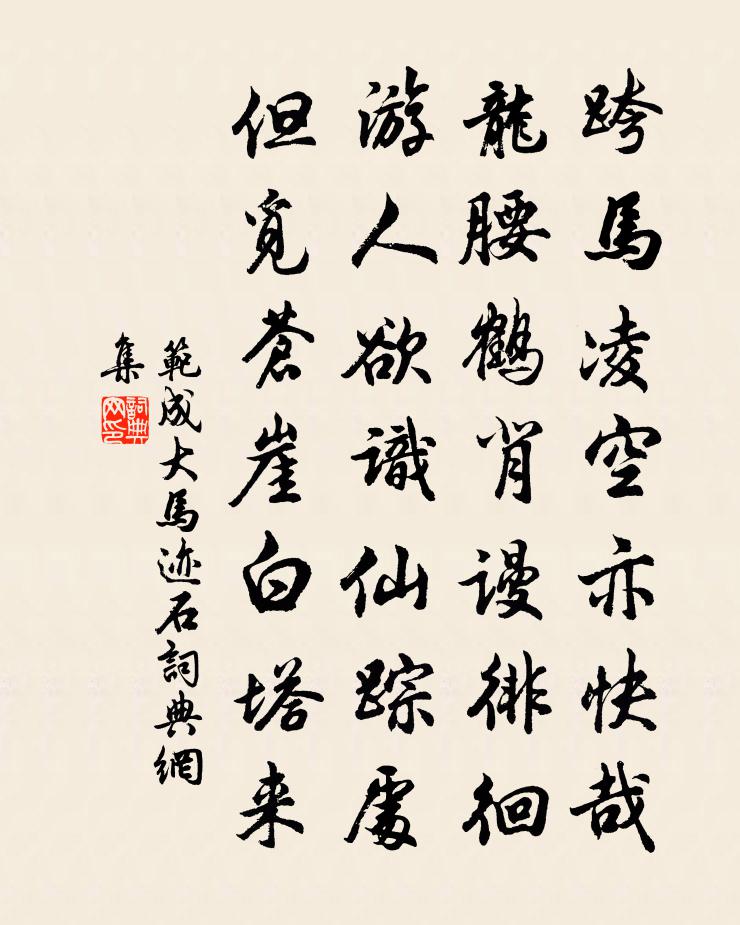 跨馬凌空亦快哉
龍腰鶴背謾徘徊
游人欲識仙踪處
但覓蒼崖白塔来
範成大馬迹石詞典網
集
詞典
网印